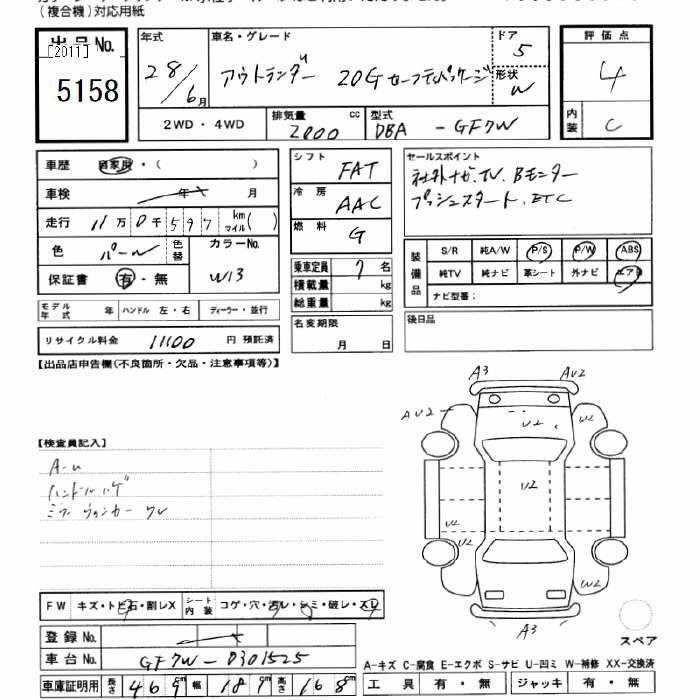 (複合機)対応用紙
出品No.
[2011]
5158
年式
28/6月
車名・グレード
アウトランダー 20Gセーフティパッケージ
ドア
5
形状
W
評価点
4
内装
C
2WD・4WD
排気量
2000 cc
型式
DBA -GF7W
車歴 自家用・( )
車検 年 月
走行 11万0千597 km マイル( )
色 パール 色替
カラーNo.
W13
保証書 有・無
モデル年式 年 ハンドル 左・右 ディーラー・並行
リサイクル料金 11100 円 預託済
シフト
FAT
冷房
AAC
燃料
G
乗車定員 7名
積載量 kg
総重量 kg
名変期限
月 日
セールスポイント
社外ナビ.TV.Bモニター
プッシュスタート.ETC
装備品
S/R 純A/W P/S P/W ABS
純TV 純ナビ 革シート 外ナビ エアB
ナビ型番:
後日品
【出品店申告欄(不良箇所・欠品・注意事項等)】
A3
AU2
AU2
U2
U2
【検査員記入】
A-u
ハンドルハゲ
ミラーウィンカーワレ
U2
U2
U2
W2
A3
スペア
FW キズ・トビ石・割レX シート内装 コゲ・穴・汚レ・シミ・破レ・スレ
登録No.
車台No. GF7W-0301525
車庫証明用 長さ 469 幅 181 高さ 168cm
A-キズ C-腐食 E-エクボ S-サビ U-凹ミ W-補修 XX-交換済
工具 有・無 ジャッキ 有・無